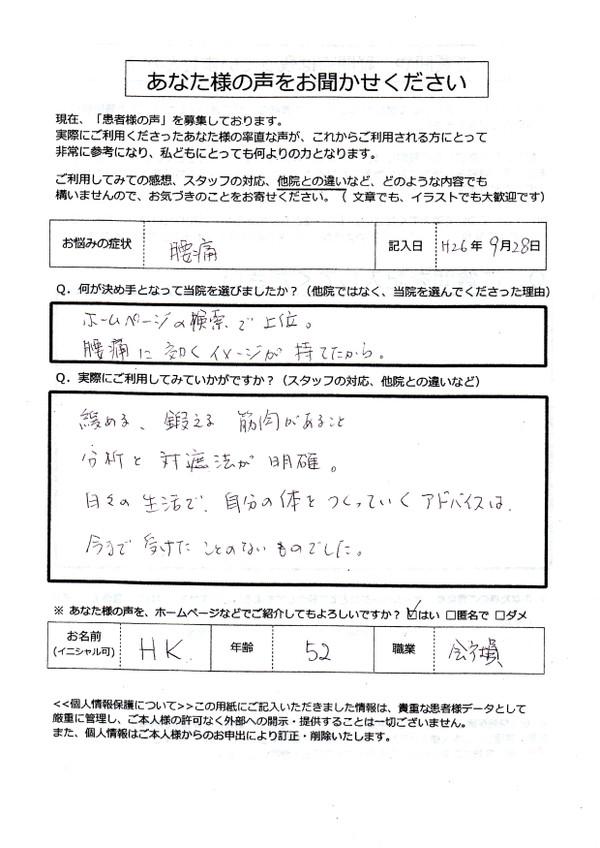 あなた様の声をお聞かせください
現在、「患者様の声」を募集しております。
実際にご利用くださったあなた様の率直な声が、これからご利用される方にとって
非常に参考になり、私どもにとっても何よりの力となります。
ご利用してみての感想、スタッフの対応、他院との違いなど、どのような内容でも
構いませんので、お気づきのことをお寄せください。（ 文章でも、イラストでも大歓迎です）
お悩みの症状 腰痛 記入日 H26年 9月28日
Q. 何が決め手となって当院を選びましたか？（他院ではなく、当院を選んでくださった理由）
ホームページの検索で上位。
腰痛に効くイメージが持てたから。
Q. 実際にご利用してみていかがですか？（スタッフの対応、他院との違いなど）
緩める、鍛える 筋肉があること
分析と対遮法が明確。
日々の生活で、自分の体をつくっていくアドバイスは、
今まで受けたことのないものでした。
※ あなた様の声を、ホームページなどでご紹介してもよろしいですか？ ☑はい □匿名で □ダメ
お名前 (イニシャル可) HK 年齢 52 職業 会社員
<<個人情報保護について>>この用紙にご記入いただきました情報は、貴重な患者様データとして
厳重に管理し、ご本人様の許可なく外部への開示・提供することは一切ございません。
また、個人情報はご本人様からのお申出により訂正・削除いたします。